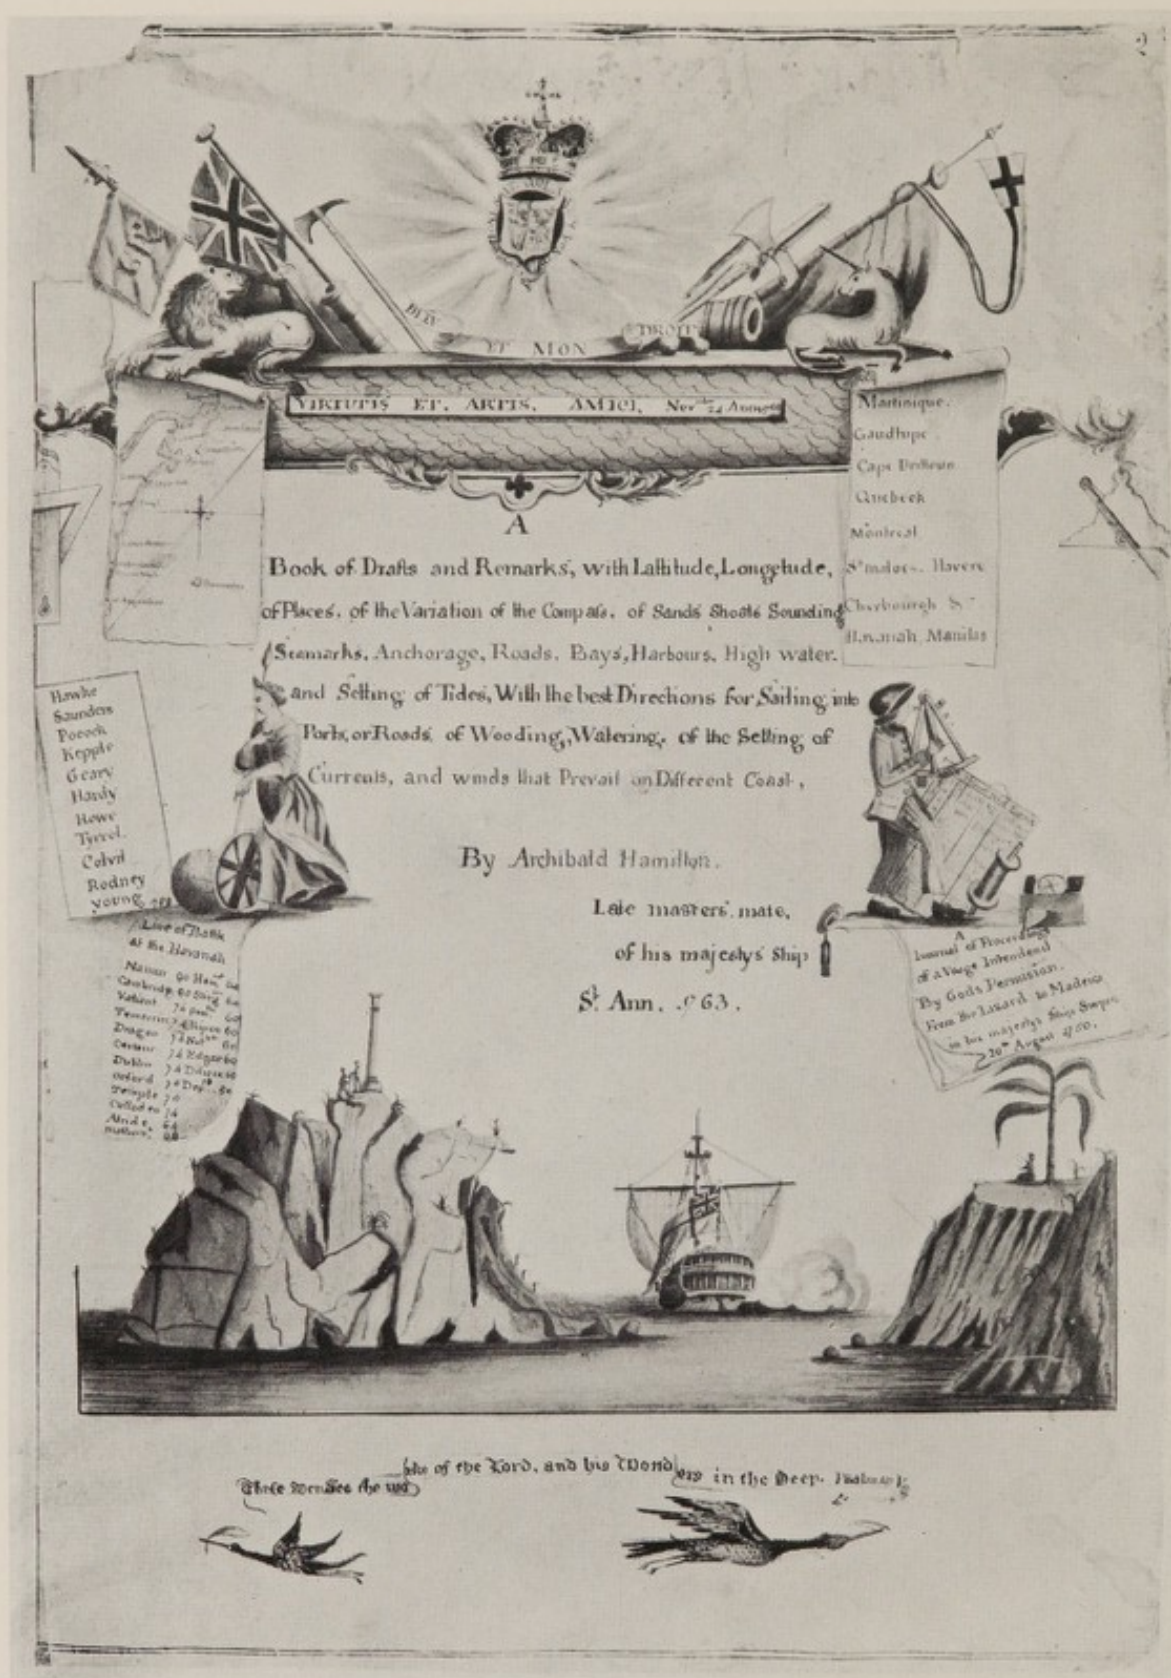 2
DIEU
ET MON
DROIT
VIRTUTIS ET. ARTIS. AMICI, Nov 24
Martinique.
Gaudlupe
Cape
Quebeck
Montreal
St maloes. Havere
Cherbourgh &c
Havanah Manilas
A
Book of Drafts and Remarks, with Lattitude, Longetude,
of Places. of the Variation of the Compass. of Sands Shoals Sounding
Seamarks, Anchorage, Roads. Bays, Harbours. High water.
and Setting of Tides, With the best Directions for Sailing into
Ports, or Roads. of Wooding, Watering. of the Setting of
Currents, and winds that Prevail on Different Coast,
By Archibald Hamilton.
Late masters mate.
of his majestys Ship
St. Ann. 763.
Hawke
Saunders
Pocock
Kepple
Geary
Hardy
Howe
Tyrrel.
Colvil
Rodney
Young
Line of Battle
at the Havanah
Namur 90
Cambridg 80
Valiant 74
74
Dragon 74
Centaur 74 Edgar 60
Dublin 74
Orford 70
Temple 70
Culloden 74
64
A
Journal of Proceedings
of a Voage Intended
By Gods Permision.
From the Lizard to Madeira
in his majestys Ship
20th August 1760.
These men See the works of the Lord, and his Wonders in the Deep.